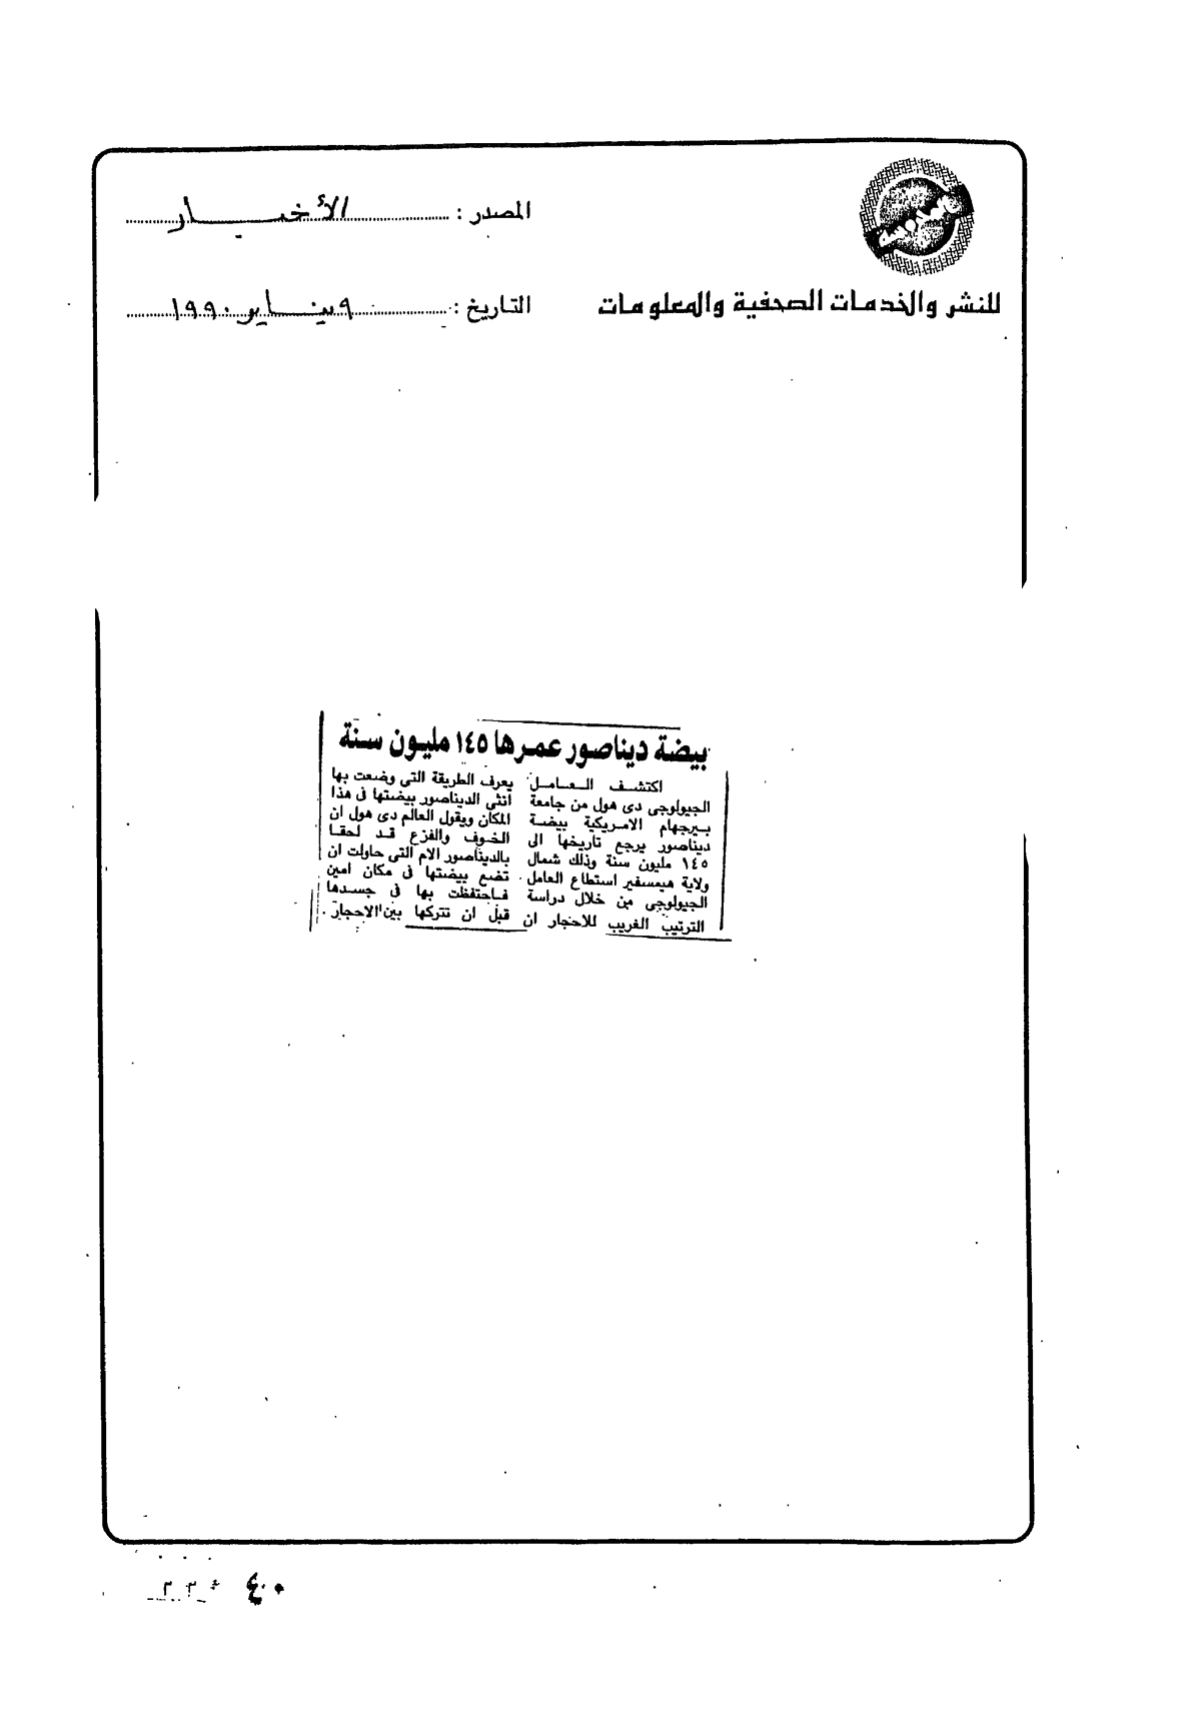 المصدر : الأخبار
للنشر والخدمات الصحفية والمعلومات
التاريخ : ٩ يناير ١٩٩٠
بيضة ديناصور عمرها ١٤٥ مليون سنة
اكتشف العامل
الجيولوجى دى هول من جامعة
بيرجهام الامريكية بيضة
ديناصور يرجع تاريخها الى
١٤٥ مليون سنة وذلك شمال
ولاية هيمسفير استطاع العامل
الجيولوجى من خلال دراسة
الترتيب الغريب للاحجار ان
يعرف الطريقة التى وضعت بها
انثى الديناصور بيضتها فى هذا
المكان ويقول العالم دى هول ان
الخوف والفزع قد لحقا
بالديناصور الام التى حاولت ان
تضع بيضتها فى مكان امين
فاحتفظت بها فى جسدها
قبل ان تتركها بين الاحجار .